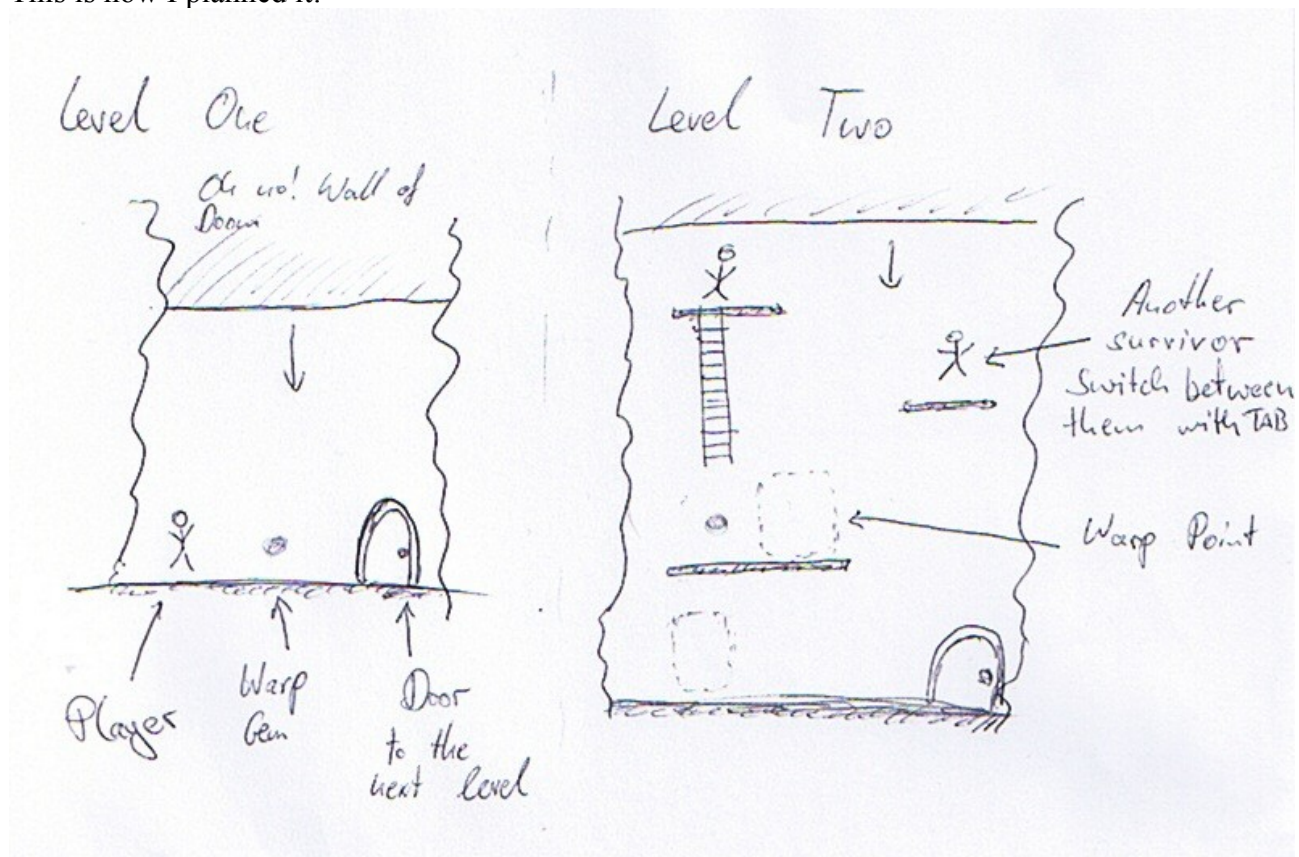 This is how I planned it:
Level One
Oh no! Wall of
Doom
Player
Warp
Gem
Door
to the
next level
Level Two
Another
survivor
Switch between
them with TAB
Warp Point